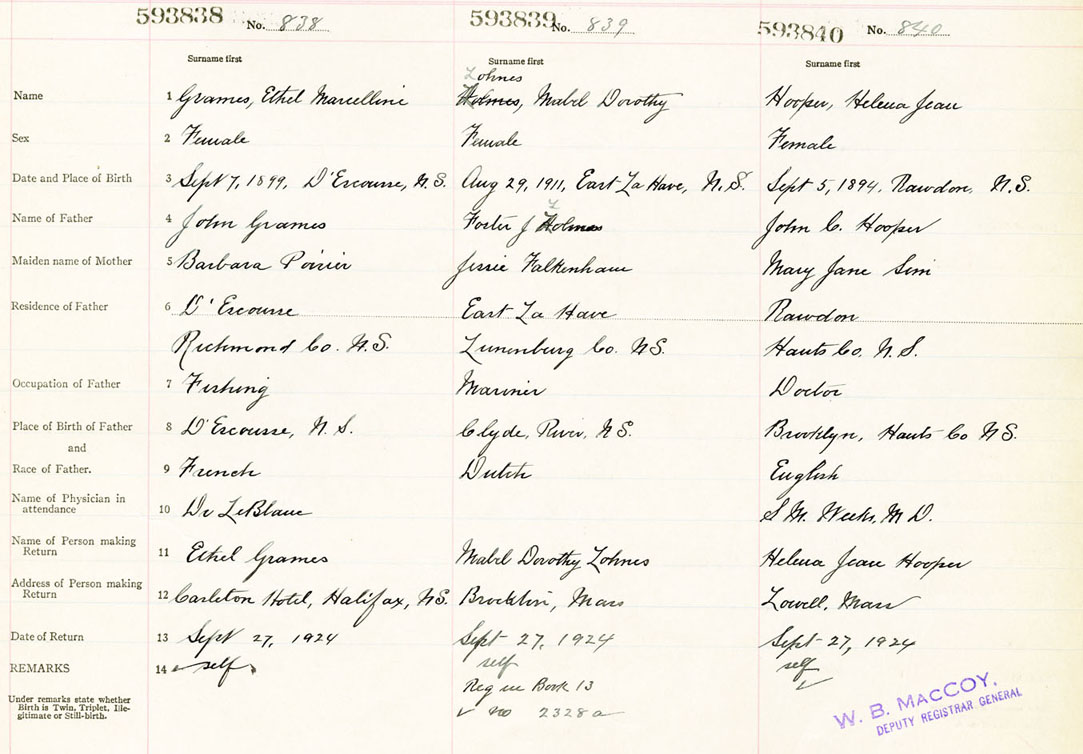 593838 No. 838 593839 No. 839 593840 No. 840
Surname first Surname first Surname first
Lohnes
Name 1 Grames, Ethel Marcelline Holmes, Mabel Dorothy Hooper, Helena Jean
Sex 2 Female Female Female
Date and Place of Birth 3 Sept 7, 1899, D'Escousse, N.S. Aug 29, 1911, East La Have, N.S. Sept 5, 1894, Rawdon, N.S.
Name of Father 4 John Grames Foster J Holmes John C. Hooper
Maiden name of Mother 5 Barbara Poirier Jessie Falkenham Mary Jane Sim
Residence of Father 6 D'Escousse East La Have Rawdon
Richmond Co. N.S. Lunenburg Co. N.S. Hants Co. N.S.
Occupation of Father 7 Fishing Mariner Doctor
Place of Birth of Father 8 D'Escousse, N.S. Clyde, River, N.S. Brooklyn, Hants Co N.S.
and
Race of Father. 9 French Dutch English
Name of Physician in
attendance 10 Dr LeBlanc S. M. Weeks, M D.
Name of Person making
Return 11 Ethel Grames Mabel Dorothy Lohnes Helena Jean Hooper
Address of Person making
Return 12 Carleton Hotel, Halifax, N.S. Brockton, Mass Lowell, Mass
Date of Return 13 Sept 27, 1924 Sept 27, 1924 Sept 27, 1924
REMARKS 14 self self self
Reg in Book 13
Under remarks state whether
Birth is Twin, Triplet, Ille-
gitimate or Still-birth.
✓ no 2328a ✓
W. B. MACCOY,
DEPUTY REGISTRAR GENERAL